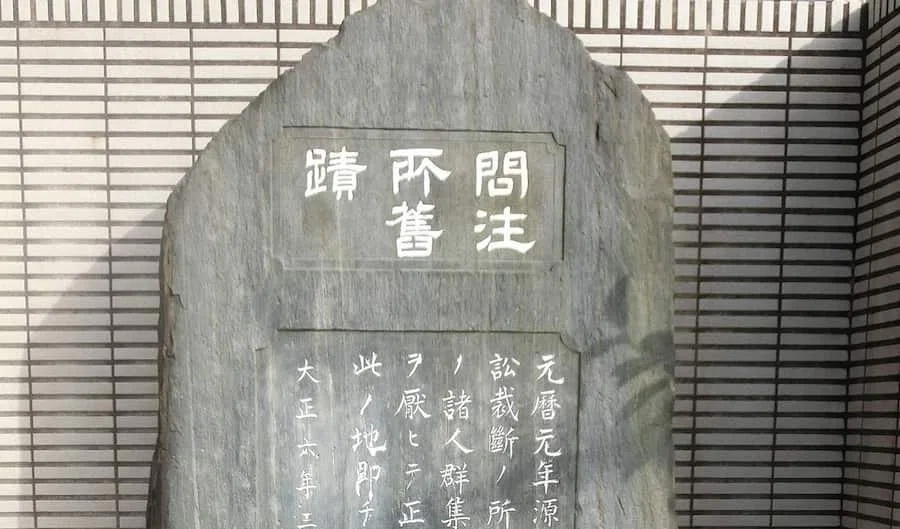 問注
所舊
蹟
元暦元年源
訟裁斷ノ所
ノ諸人群集
ヲ厭ヒテ正
此ノ地即チ
大正六年三